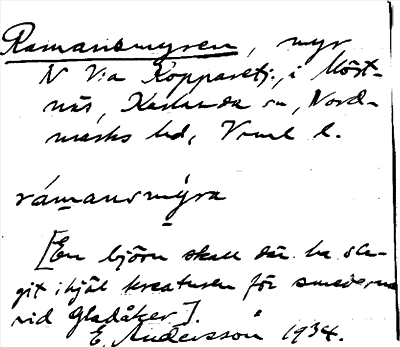 Ramansmyren, myr
N Via Kopparetj., i Möst-
näs, Karlanda sn, Nord-
marks hd, Vrml l.
rámansmýra
[En björn skall där ha sla-
git ihjäl kreaturen för smederna
vid Gladåker].
E. Andersson 1934.